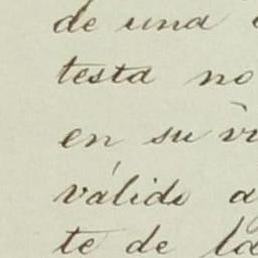 de una
testa no
en su
válido a
te de la